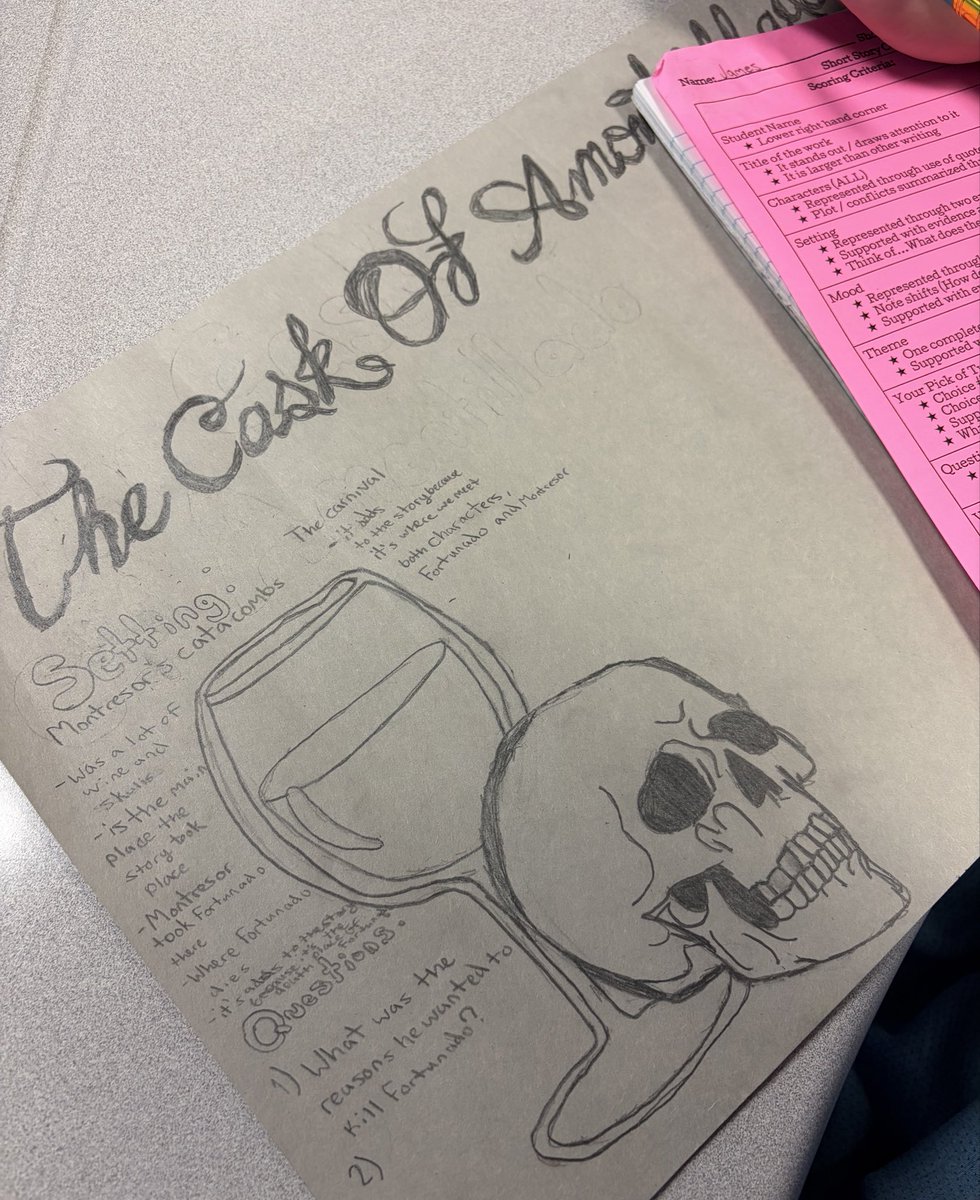 The Cask Of Amontillado
The carnival
- it adds
to the story because
it's where we meet
both characters,
Fortunado and Montresor
Setting:
Montresor's catacombs
- Was a lot of
wine and
skulls
- is the main
place the
story took
place
- Montresor
took Fortunado
there
- Where Fortunado
dies
- it's adds to the story
because it's the
death place of
Fortunato
Questions:
1) What was the
reasons he wanted to
kill Fortunado?
2)
Name: James
Short Story
Scoring Criteria:
Student Name
★ Lower right hand corner
Title of the work
★ It stands out / draws attention to it
★ It is larger than other writing
Characters (ALL)
★ Represented through use of
★ Plot / conflicts summarized
Setting
★ Represented through two
★ Supported with evidence
★ Think of...What does the
Mood
★ Represented
★ Note shifts (How
★ Supported with
Theme
★ One
★ Supported
Your Pick of
★ Choice
★ Choice
★
★